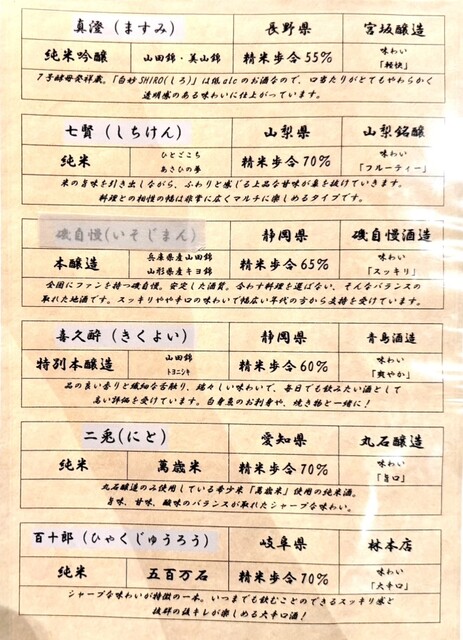 真澄（ますみ） 長野県 宮坂醸造
純米吟醸 山田錦・美山錦 精米歩合55% 味わい
「軽快」
7号酵母発祥蔵。「白妙SHIRO(しろ)」は低alcのお酒なので、口当たりがとてもやわらかく
透明感のある味わいに仕上がっています。
七賢（しちけん） 山梨県 山梨銘醸
純米 ひとごこち 精米歩合70% 味わい
あさひの夢 「フルーティー」
米の旨味を引き出しながら、ふわりと感じる上品な甘味が鼻を抜けていきます。
料理との相性の幅は非常に広くマルチに楽しめるタイプです。
磯自慢(いそじまん) 静岡県 磯自慢酒造
本醸造 兵庫県産山田錦 精米歩合65% 味わい
山形県産キヨ錦 「スッキリ」
全国にファンを持つ磯自慢。安定した酒質。合わす料理を選ばない、そんなバランスの
取れた地酒です。スッキリやや辛口の味わいで幅広い年代の方から支持を受けています。
喜久酔（きくよい） 静岡県 青島酒造
特別本醸造 山田錦 精米歩合60% 味わい
トヨニシキ 「爽やか」
品の良い香りと繊細な舌触り、瑞々しい味わいで、毎日でも飲みたい酒として
高い評価を受けています。白身魚のお刺身や、焼き物と一緒に！
二兎(にと) 愛知県 丸石醸造
純米 萬歳米 精米歩合70% 味わい
「旨口」
丸石醸造のみ使用している希少米「萬歳米」使用の純米酒。
旨味、甘味、酸味のバランスが取れたシャープな味わい。
百十郎（ひゃくじゅうろう） 岐阜県 林本店
純米 五百万石 精米歩合70% 味わい
「大辛口」
シャープな味わいが特徴の一本。いつまでも飲むことのできるスッキリ感と
抜群の後キレが楽しめる大辛口酒！